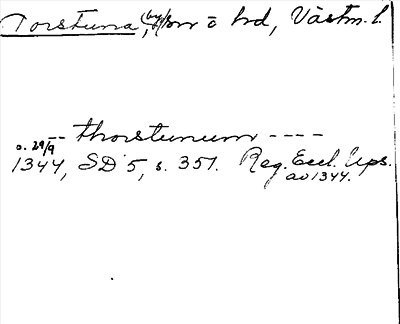 Torstuna, (by), sn o hd, Västm. l.
-- thorstunum ----
o. 29/9
1344, SD 5, s. 351. Reg. Eccl. Ups.
av 1344.